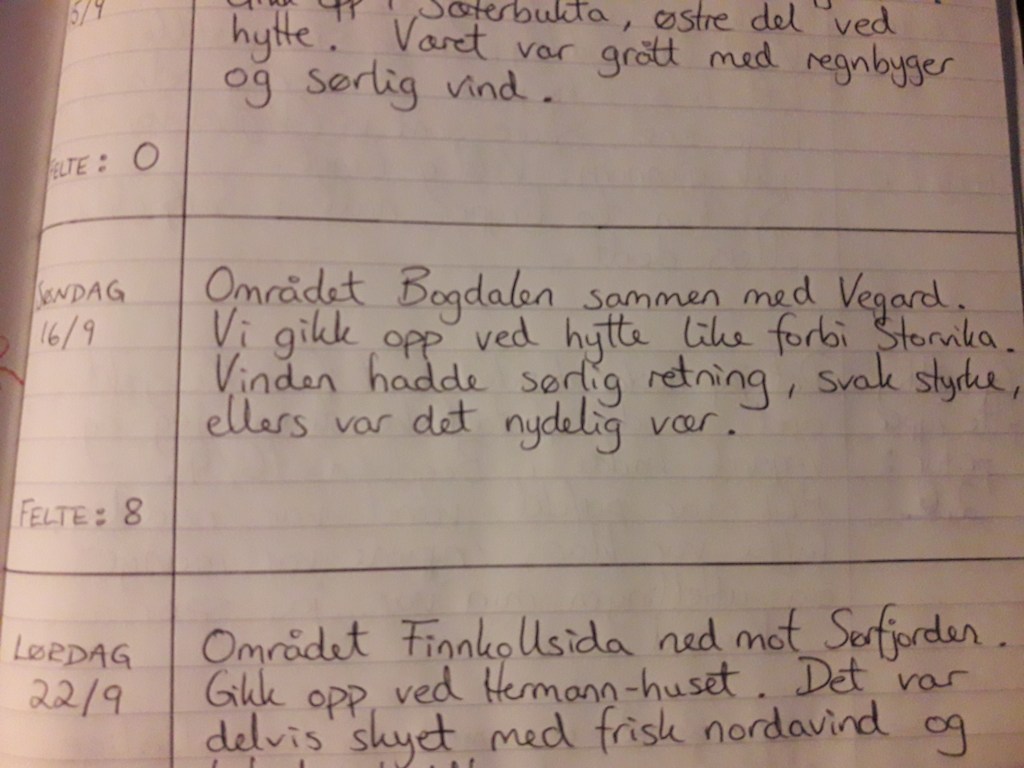 5/9
opp i Sæterbukta, østre del ved
hytte. Været var grått med regnbyger
og sørlig vind.
FELTE: 0
SØNDAG
16/9
Området Bogdalen sammen med Vegard.
Vi gikk opp ved hytte like forbi Storvika.
Vinden hadde sørlig retning, svak styrke,
ellers var det nydelig vær.
FELTE: 8
LØRDAG
22/9
Området Finnkollsida ned mot Sørfjorden.
Gikk opp ved Hermann-huset. Det var
delvis skyet med frisk nordavind og